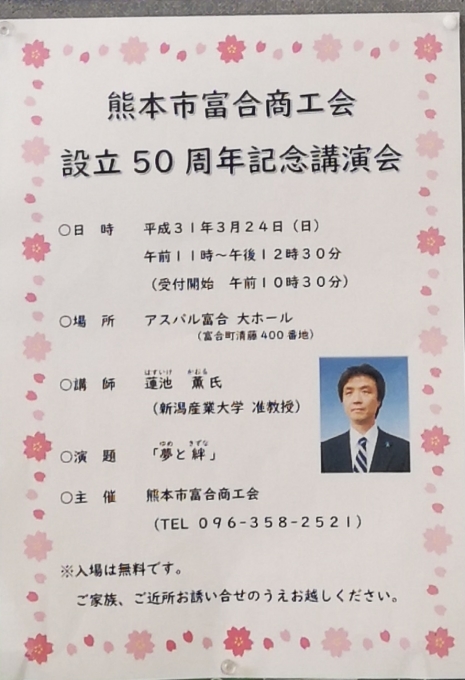 熊本市富合商工会
設立50周年記念講演会
○日　時　平成31年3月24日（日）
午前11時～午後12時30分
（受付開始　午前10時30分）
○場　所　アスパル富合 大ホール
（富合町清藤400番地）
はすいけ　かおる
○講　師　蓮池　薫 氏
（新潟産業大学 准教授）
ゆめ　きずな
○演　題　「夢と絆」
○主　催　熊本市富合商工会
（TEL 096-358-2521）
※入場は無料です。
ご家族、ご近所お誘い合せのうえお越しください。